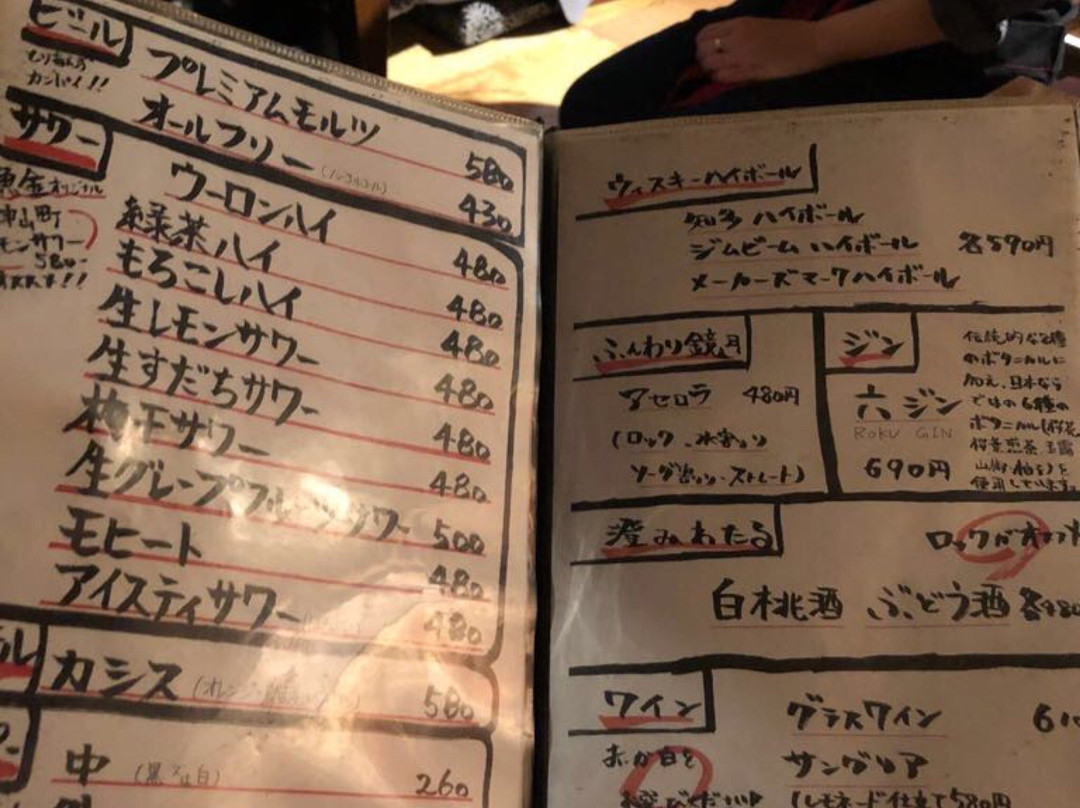 ビール
カンパイ!!
プレミアムモルツ 580
オールフリー (ノンアルコール) 430
サワー
恵金オリジナル
神山町
モンサワー
580-
ウーロンハイ 480
緑茶ハイ 480
もろこしハイ 480
生レモンサワー 480
生すだちサワー 480
梅干サワー 480
生グレープフルーツサワー 500
モヒート 480
アイスティサワー 480
ル
カシス (オレンジ 580
中 (黒又は白) 260
ウィスキーハイボール
知多 ハイボール
ジムビーム ハイボール 各590円
メーカーズマークハイボール
ふんわり鏡月
アセロラ 480円
(ロック、水割り
ソーダ割り・ストレート)
ジン
六 ジン
ROKU GIN
690円
伝統的な8種
のボタニカルに
加え、日本なら
ではの6種の
ボタニカル(桜花
桜葉煎茶 玉露
山椒・柚子)を
使用しています。
澄みわたる
ロックが
白桃酒 ぶどう酒 各480
ワイン
あか白を
お選びください
グラスワイン
サングリア
(レモネード仕立て580円